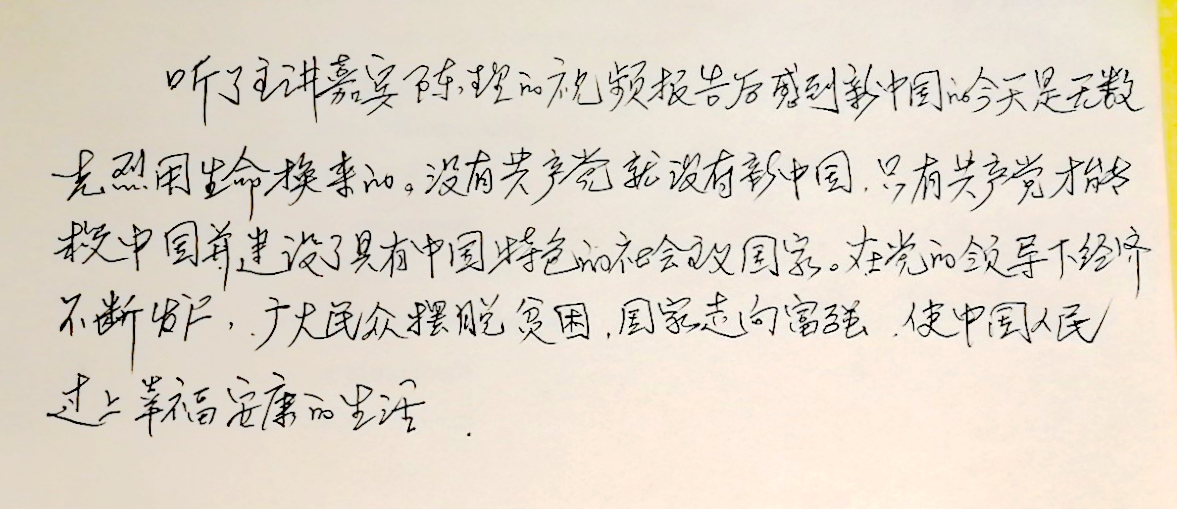 听了主讲嘉宾陈理的视频报告后感到新中国的今天是无数
先烈用生命换来的。没有共产党就没有新中国,只有共产党才能
救中国并建设了具有中国特色的社会主义国家。在党的领导下经济
不断发展,广大民众摆脱贫困,国家走向富强,使中国人民
过上幸福安康的生活.